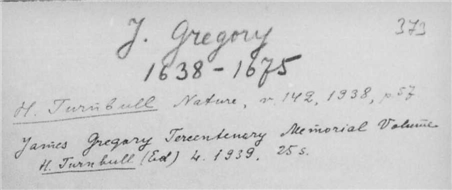 J. Gregory
373
1638-1675
H. Turnbull Nature, v. 142, 1938, p.57
James Gregory Tercentenary Memorial Volume
H. Turnbull (Ed) 4. 1939. 25s.